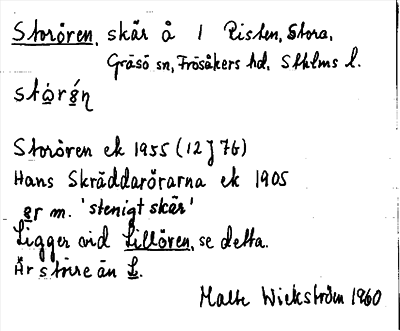 Storören, skär å 1 Risten, Stora,
Gräsö sn, Frösåkers hd, Sthlms l.
stọ̀rǿ̣ṇ
Storören ek 1955 (12 J 7b)
Hans Skräddarörarna ek 1905
ør m. 'stenigt skär'
Ligger vid Lillören, se detta.
Är större än L.
Malte Wickström 1960